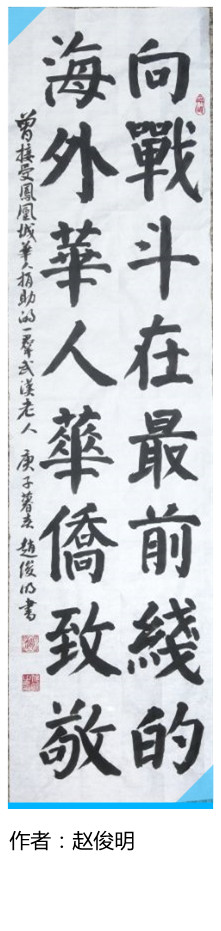 向戰斗在最前綫的
海外華人華僑致敬
曾接受鳳凰城華人捐助的一群武漢老人 庚子暮春 趙俊明書
作者：赵俊明